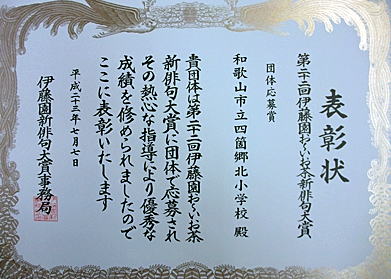 表彰状
第二十二回伊藤園おーいお茶新俳句大賞
団体応募賞
和歌山市立四箇郷北小学校 殿
貴団体は第二十二回伊藤園おーいお茶
新俳句大賞に団体で応募され
その熱心な指導により優秀な
成績を修められましたので
ここに表彰いたします
平成二十三年七月七日
伊藤園新俳句大賞事務局